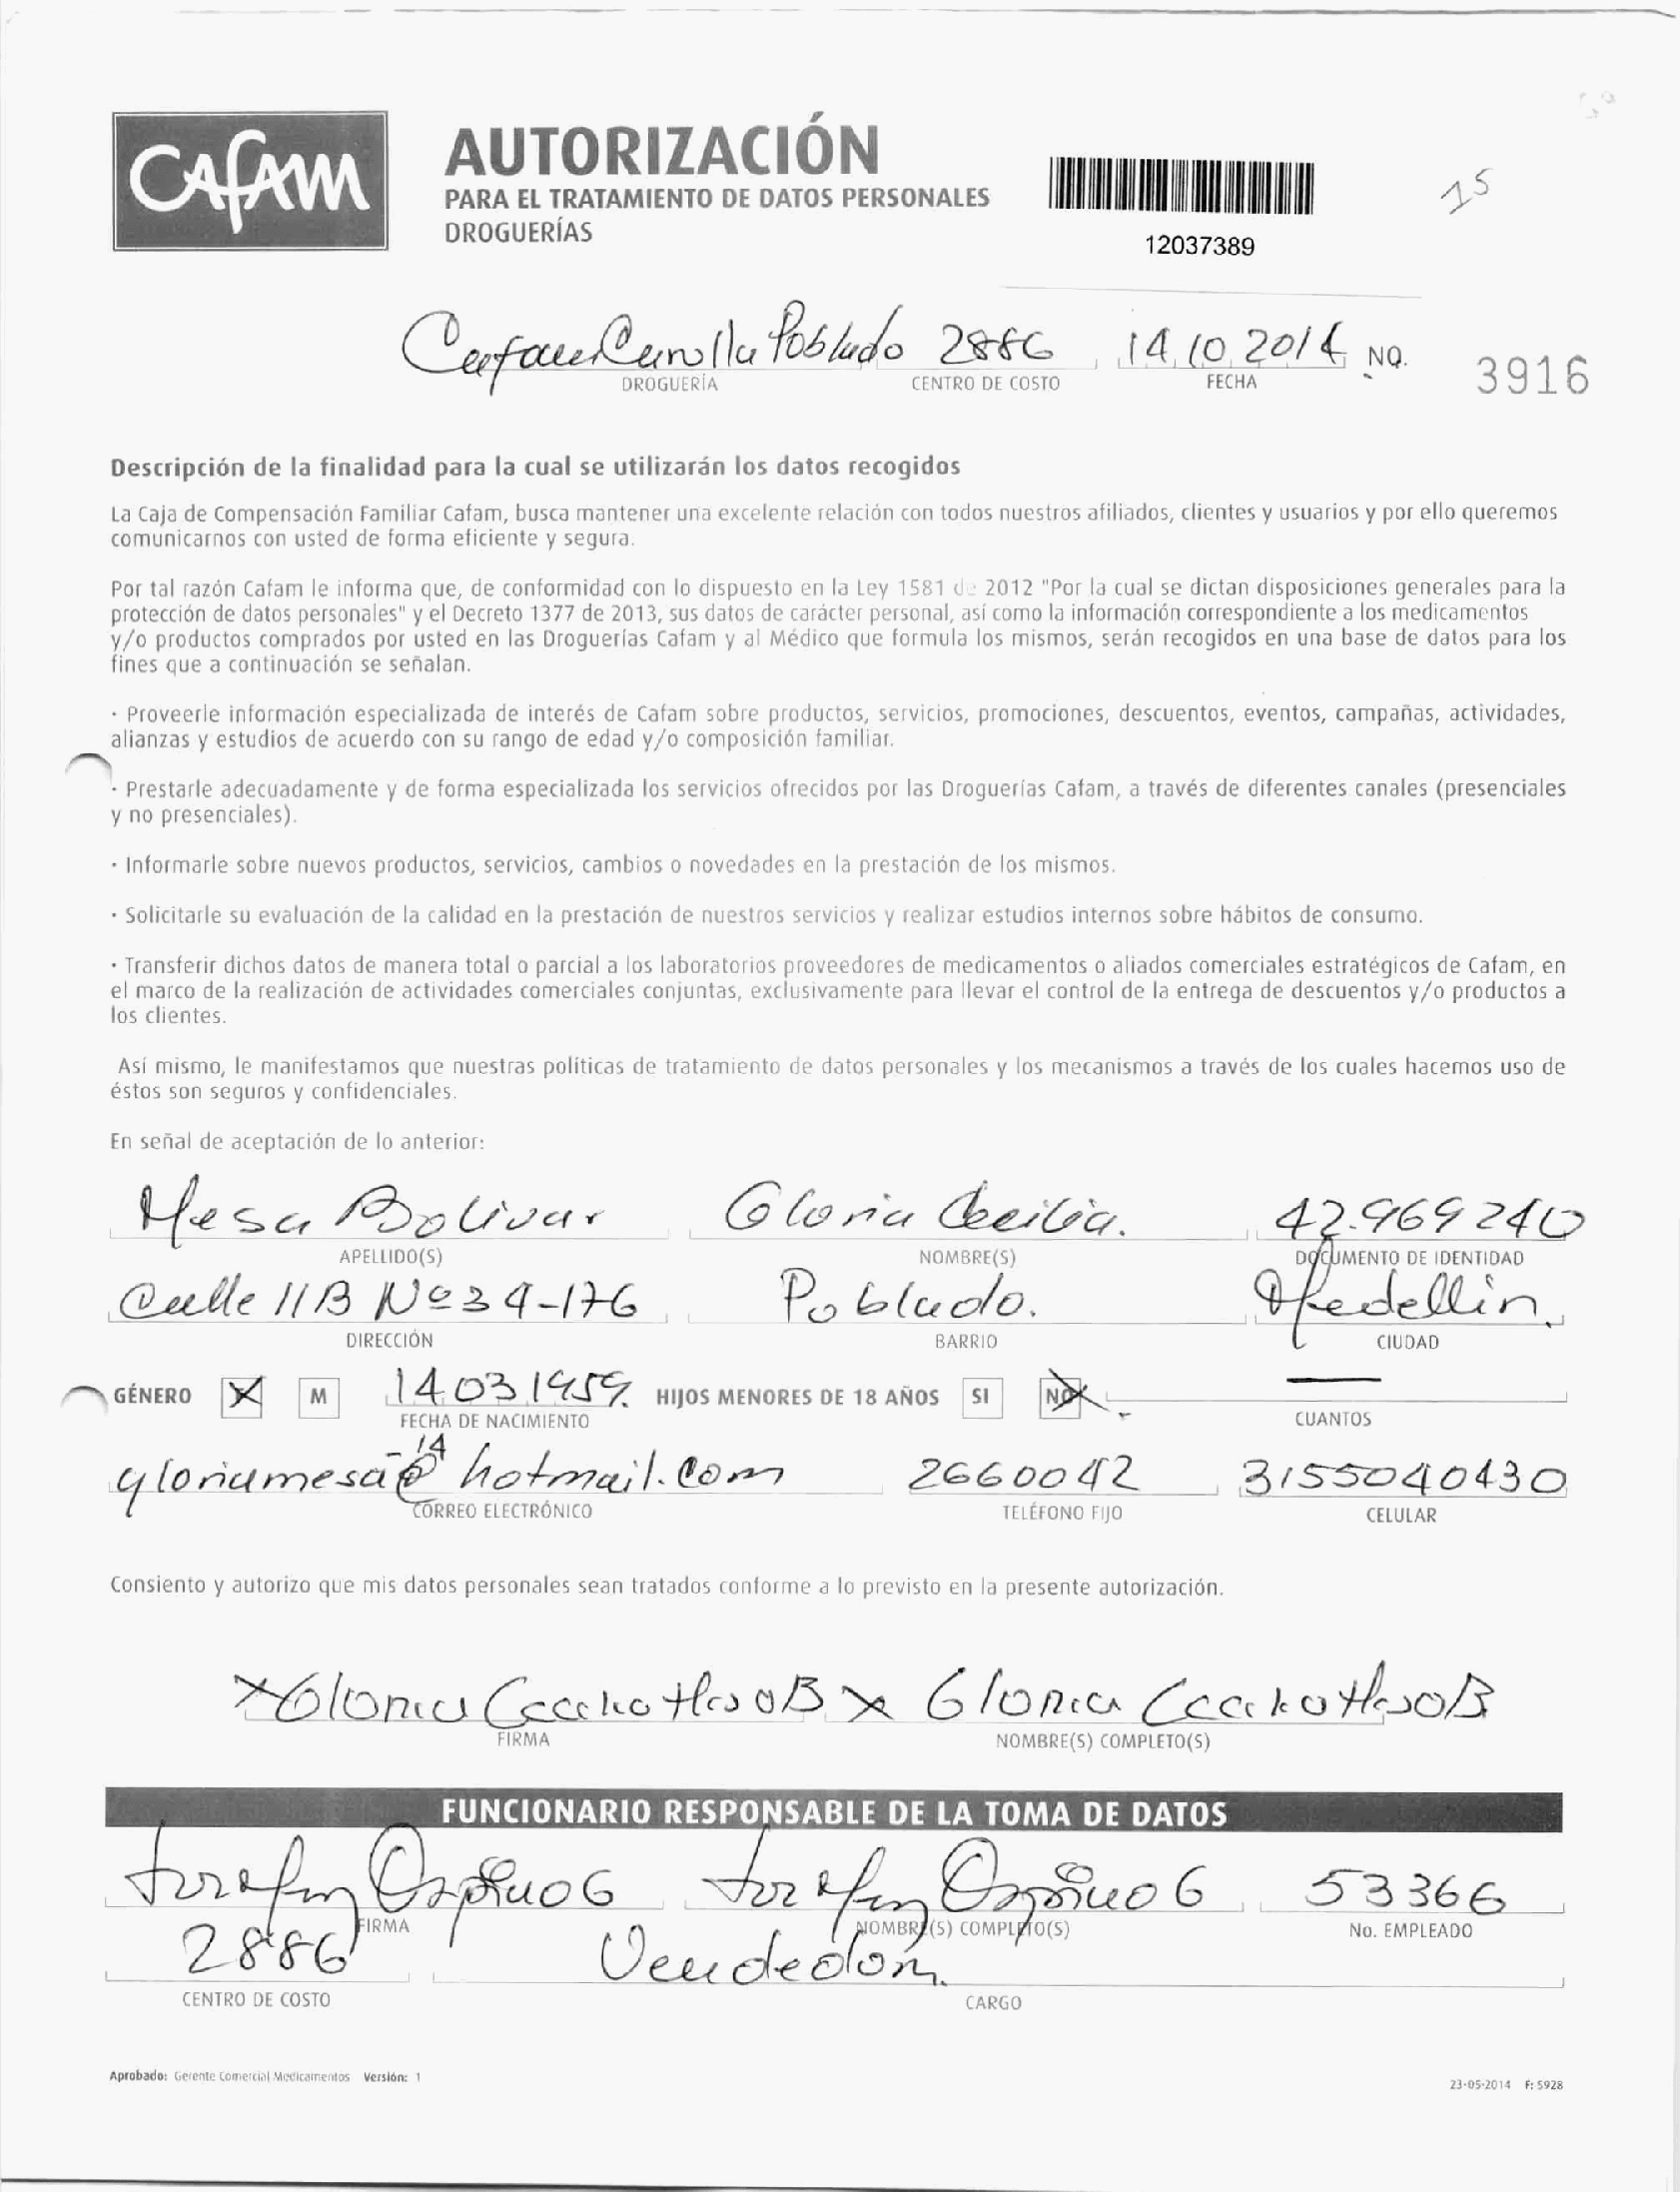 CAFAM
AUTORIZACIÓN
PARA EL TRATAMIENTO DE DATOS PERSONALES
DROGUERÍAS
12037389
15
Poblado 2886 14 10 2014 NO. 3916
DROGUERÍA CENTRO DE COSTO FECHA
Descripción de la finalidad para la cual se utilizarán los datos recogidos
La Caja de Compensación Familiar Cafam, busca mantener una excelente relación con todos nuestros afiliados, clientes y usuarios y por ello queremos
comunicarnos con usted de forma eficiente y segura.
Por tal razón Cafam le informa que, de conformidad con lo dispuesto en la Ley 1581 de 2012 "Por la cual se dictan disposiciones generales para la
protección de datos personales" y el Decreto 1377 de 2013, sus datos de carácter personal, así como la información correspondiente a los medicamentos
y/o productos comprados por usted en las Droguerías Cafam y al Médico que formula los mismos, serán recogidos en una base de datos para los
fines que a continuación se señalan.
· Proveerle información especializada de interés de Cafam sobre productos, servicios, promociones, descuentos, eventos, campañas, actividades,
alianzas y estudios de acuerdo con su rango de edad y/o composición familiar.
· Prestarle adecuadamente y de forma especializada los servicios ofrecidos por las Droguerías Cafam, a través de diferentes canales (presenciales
y no presenciales).
· Informarle sobre nuevos productos, servicios, cambios o novedades en la prestación de los mismos.
· Solicitarle su evaluación de la calidad en la prestación de nuestros servicios y realizar estudios internos sobre hábitos de consumo.
· Transferir dichos datos de manera total o parcial a los laboratorios proveedores de medicamentos o aliados comerciales estratégicos de Cafam, en
el marco de la realización de actividades comerciales conjuntas, exclusivamente para llevar el control de la entrega de descuentos y/o productos a
los clientes.
Así mismo, le manifestamos que nuestras políticas de tratamiento de datos personales y los mecanismos a través de los cuales hacemos uso de
éstos son seguros y confidenciales.
En señal de aceptación de lo anterior:
Mesa Bolivar Gloria Cecilia. 42.969240
APELLIDO(S) NOMBRE(S) DOCUMENTO DE IDENTIDAD
Calle 11B Nº 34-176 Poblado. Medellin.
DIRECCIÓN BARRIO CIUDAD
GÉNERO X M 14.03 1959. HIJOS MENORES DE 18 AÑOS SI NO
FECHA DE NACIMIENTO CUANTOS
gloriamesa-14@hotmail.com 2660042 3155040430
CORREO ELECTRÓNICO TELÉFONO FIJO CELULAR
Consiento y autorizo que mis datos personales sean tratados conforme a lo previsto en la presente autorización.
X Gloria Cecilia Mesa B X Gloria Cecilia Mesa B
FIRMA NOMBRE(S) COMPLETO(S)
FUNCIONARIO RESPONSABLE DE LA TOMA DE DATOS
Ospino G Ospino G 53366
FIRMA NOMBRE(S) COMPLETO(S) No. EMPLEADO
2886 Vendedor.
CENTRO DE COSTO CARGO
Aprobado: Gerente Comercial Medicamentos Versión: 1
23-05-2014 F: 5928